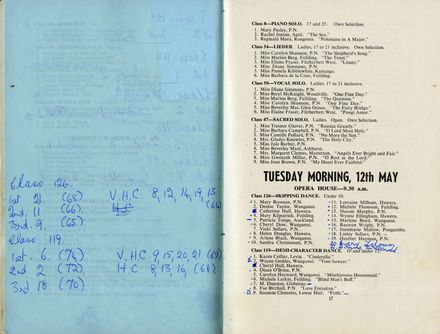 Class 126.
1st 21 (68)
2nd. 11 (66)
3rd. 9 (65)
V.H.C. 8, 12, 14, 19, 13
(64)
Class 119.
1st. 6. (76)
2nd 2 (72)
3rd 18 (70)
V.H.C. 9, 15, 20, 21 (69)
H.C 8, 13, 16, (68)
Class 8—PIANO SOLO. 17 and 25. Own Selection.
1. Mary Pusley, P.N.
2. Rachel Jensen, Apiti. "The Sea."
3. Reginald Mora, Rongotea. "Polonaise in A Major."
Class 54—LIEDER. Ladies, 17 to 21 inclusive. Own Selection.
1. Miss Carolyn Shannon, P.N. "The Shepherd's Song."
2. Miss Marion Berg, Feilding. "The Ermit."
3. Miss Elaine Fraser, Fitzherbert West. "Litany."
4. Miss Diane Simmons, P.N.
5. Miss Pamela Kibblewhite, Kairanga.
6. Miss Barbara de la Cour, Feilding.
Class 50—VOCAL SOLO. Ladies, 17 to 21 inclusive.
1. Miss Diane Simmons, P.N.
2. Miss Beryl McKnight, Woodville. "One Fine Day."
3. Miss Marion Berg, Feilding. "The Question."
4. Miss Carolyn Shannon, P.N. "One Fine Day."
5. Miss Beverley May, Glen Oroua. "The Fairy Bridge."
6. Miss Elaine Fraser, Fitzherbert West. "Pongi Amor."
Class 47—SACRED SOLO. Ladies. Open. Own Selection.
1. Miss Treanor Glover, P.N. "Rejoice Greatly."
2. Miss Barbara Campbell, P.N. "O Lord Most Holy."
3. Miss Camille Pollard, P.N. "Nor More the Son."
4. Mrs. Gladys Knowles, P.N. "The Holy City."
5. Miss Jule Barber, P.N.
6. Miss Beverley Maul, Ashhurst.
7. Mrs. Margaret Clemos, Masterton. "Angels Ever Bright and Fair."
8. Miss Gwinyth Millar, P.N. "O Rest in the Lord."
9. Miss Jean Brown, P.N. "My Heart Ever Faithful."
TUESDAY MORNING, 12th MAY
OPERA HOUSE—9.30 a.m.
Class 126—SKIPPING DANCE. Under 10.
1. Mary Bosman, P.N.
2. Denise Taylor, Wanganui.
3. Catherine Hall, Hawera.
4. Mary Kilpatrick, Feilding.
5. Patricia Tonge, Auckland.
6. Cheryl Dow, Wanganui.
7. Vicki Sellars, P.N.
8. Helen Douglas, Hawera.
9. Arlene Black, Wanganui.
10. Sandra Christensen, P.N.
11. Lorraine Milham, Hawera.
12. Michele Thomson, Feilding.
13. Sharon Murphy, P.N.
14. Wynne Ellingham, Hawera.
15. Marlene Baird, Wanganui.
16. Raewyn Wright, P.N.
17. Jeanmarie Mellow, Pungarehu.
18. Linley Sellars, P.N.
19. Heather Hayman, P.N.
Class 119—DEMI-CHARACTER DANCE. 10 and under 12.
1. Karen Collier, Levin. "Cinderella."
2. Wayne Geddes, Wanganui. "Tom Sawyer."
3. Cheryl Hall, Hawera.
4. Diane O'Brien, P.N.
5. Carolyn Hayward, Wanganui. "Mischievous Housmaid."
6. Michele Larkin, Feilding. "Blind Man's Buff."
7. M. Dunstan, Gisborne.
8. Fay Birchall, P.N. "Love Forsaken."
9. Suzanne Clements, Lower Hutt. "Frith."
17